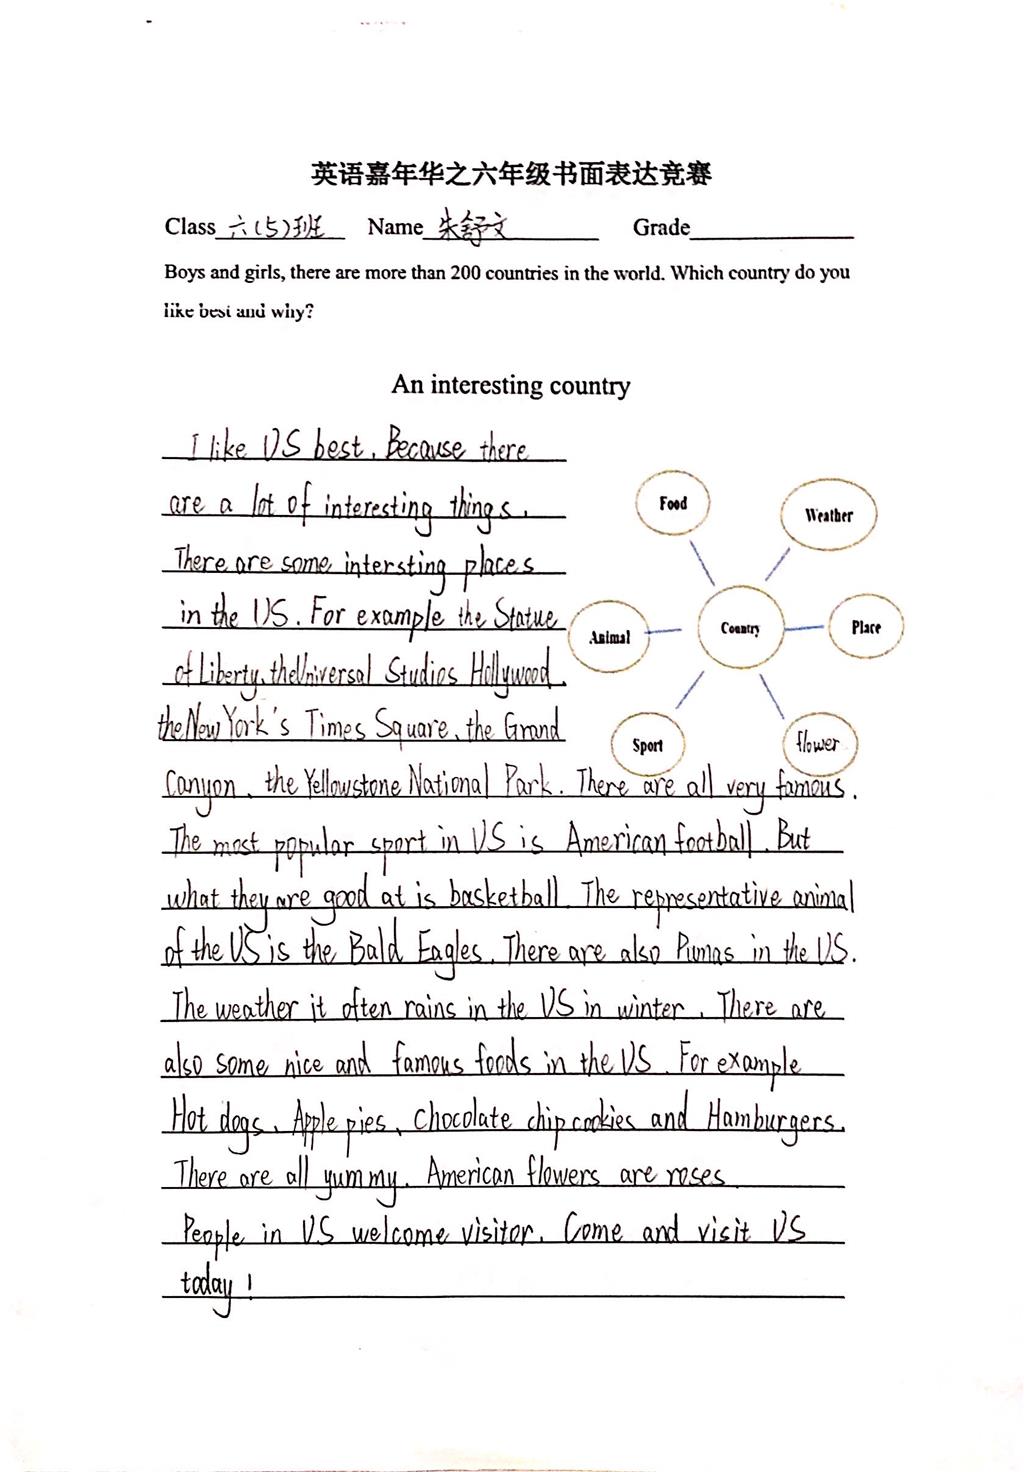 英语嘉年华之六年级书面表达竞赛
Class 六(5)班 Name 朱舒文 Grade
Boys and girls, there are more than 200 countries in the world. Which country do you
like best and why?
An interesting country
I like US best. Because there
are a lot of interesting things.
There are some intersting places
in the US. For example the Statue
of Liberty、the Universal Studios Hollywood、
the New York's Times Square、the Grand
Canyon、the Yellowstone National Park. There are all very famous.
The most popular sport in US is American football. But
what they are good at is basketball. The representative animal
of the US is the Bald Eagles. There are also Pumas in the US.
The weather it often rains in the US in winter. There are
also some nice and famous foods in the US. For example
Hot dogs、Apple pies、Chocolate chip cookies and Hamburgers.
There are all yummy. American flowers are roses
People in US welcome visitor. Come and visit US
today!
Food
Weather
Animal
Country
Place
Sport
flower